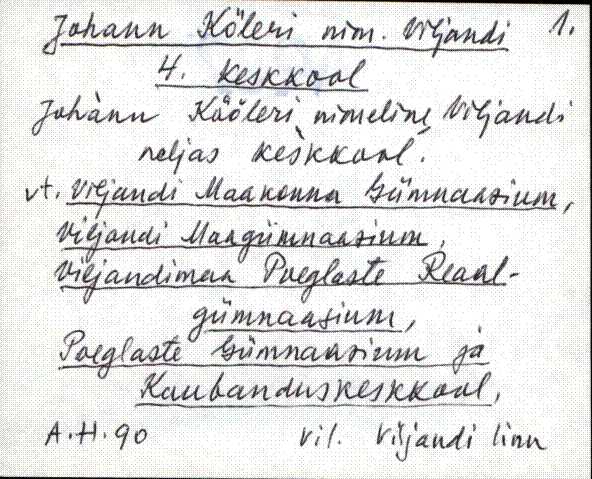 Johann Köleri nim. Viljandi 1.
4. keskkool
Johànn Kööleri nimeline Viljandi
neljas kèskkool.
vt. Viljandi Maakonna Gümnaasium,
Viljandi Maagümnaasium,
Viljandimaa Poeglaste Reaal-
gümnaasium,
Poeglaste Gümnaasium ja
Kaubanduskeskkool,
A.H.90 vil. Viljandi linn